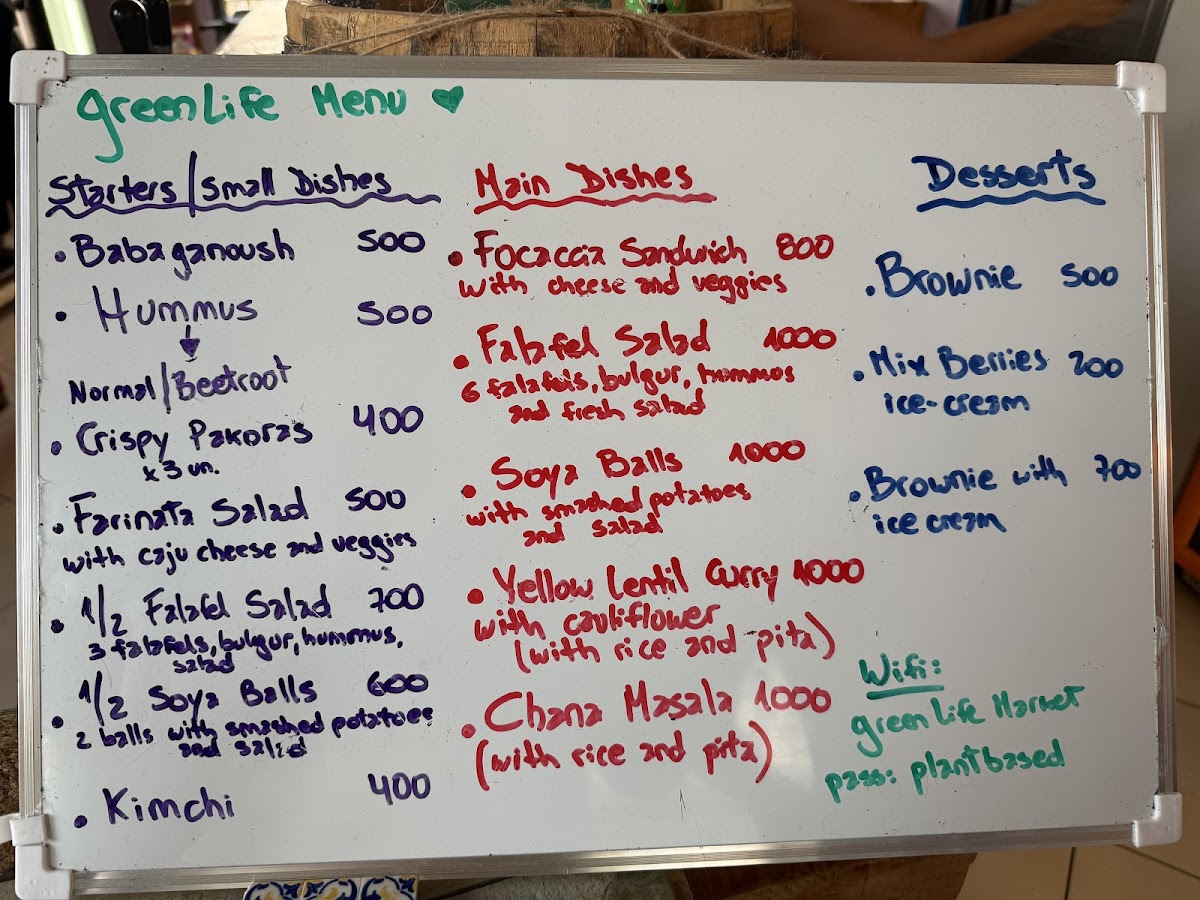 greenLife Menu ♥
Starters/Small Dishes
• Babaganoush 500
• Hummus 500
↓
Normal/Beetroot
• Crispy Pakoras 400
x3 un.
• Farinata Salad 500
with caju cheese and veggies
• 1/2 Falafel Salad 700
3 falafels, bulgur, hummus,
salad
• 1/2 Soya Balls 600
2 balls with smashed potatoes
and salad
• Kimchi 400
Main Dishes
• Focaccia Sandwich 800
with cheese and veggies
• Falafel Salad 1000
6 falafels, bulgur, hummos
and fresh salad
• Soya Balls 1000
with smashed potatoes
and salad
• Yellow Lentil Curry 1000
with cauliflower
(with rice and pita)
• Chana Masala 1000
(with rice and pita)
Desserts
• Brownie 500
• Mix Berries 200
ice-cream
• Brownie with 700
ice cream
Wifi:
greenLife Market
pass: plantbased